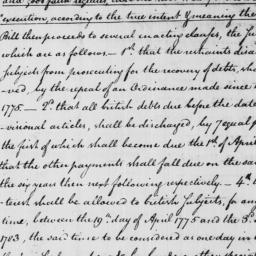 and 300
execution, according to the true intent & meaning the
Bill then proceeds to several enacting clauses, the
which are as follows — 1st that the restraints disa
subjects from prosecuting for the recovery of debts, sh
=ved, by the repeal of an Ordinance made since
1775 — 2d that all british debts due before the date
=visional articles, shall be discharged, by 7 equal p
the first of which shall become due the 1st of April
that the other payments shall fall due on the sa
the six years then next following respectively — 4th
=terest shall be allowed to british subjects, for an
time, between the 19th day of April 1775 and the 3d
1783, the said time to be considered as one day in